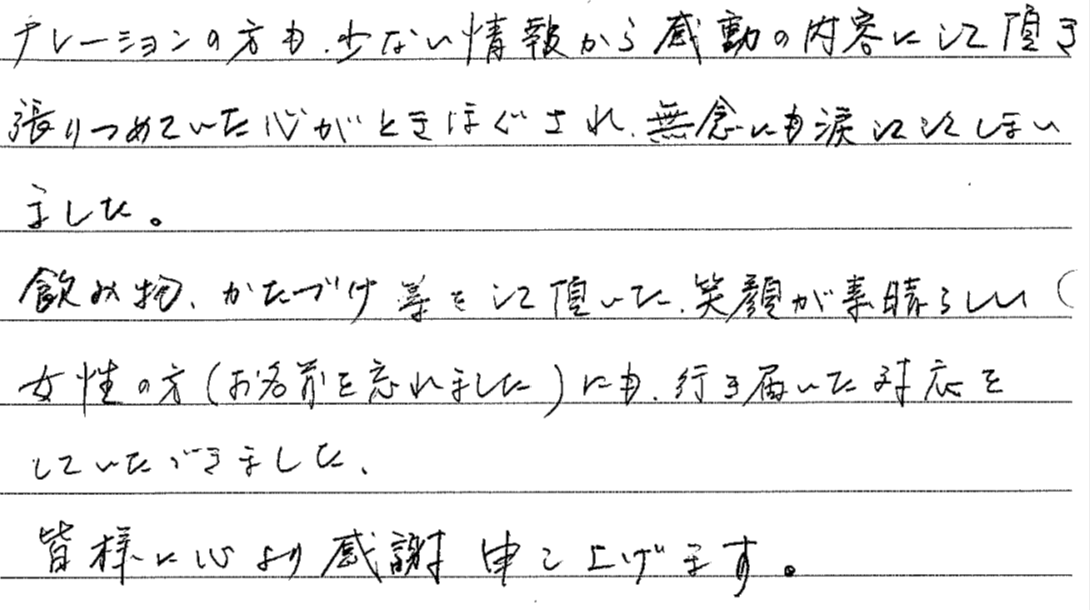 ナレーションの方も、少ない情報から感動の内容にして頂き
張りつめていた心がときほぐされ、無念にも涙にしてしまい
ました。
飲み物、かたづけ等をして頂いた、笑顔が素晴らしい
女性の方(お名前を忘れました)にも、行き届いた対応を
していただきました、
皆様に心より感謝申し上げます。